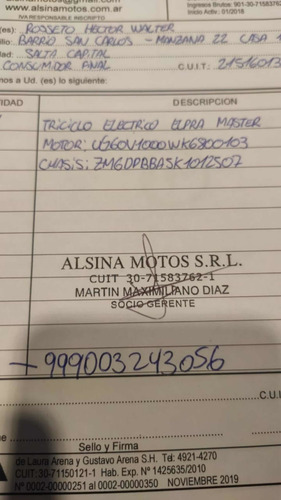 www.alsinamotos.com.ar
IVA RESPONSABLE INSCRIPTO
Ingresos Brutos: 901-30-7158376
Inicio Activ.: 01/2018
(es): ROSSETO HECTOR WALTER
lio: BARRIO SAN CARLOS - MANZANA 22 CASA 1
dad: SALTA CAPITAL
CONSUMIDOR FINAL C.U.I.T: 21516013
mos a Ud. (es) lo siguiente:
IDAD DESCRIPCIÓN
TRICICLO ELECTRICO ELPRA MASTER
MOTOR: UG60V1000WK6800103
CHASIS: ZMGDPBBASK1012507
ALSINA MOTOS S.R.L.
CUIT 30-71583762-1
MARTIN MAXIMILIANO DIAZ
SOCIO GERENTE
+999003243056
C.U.I
me
Sello y Firma
de Laura Arena y Gustavo Arena S.H. Tel: 4921-4270
CUIT:30-71150121-1 Hab. Exp. Nº 1425635/2010
Nº 0002-00000251 al 0002-00000350 NOVIEMBRE 2019